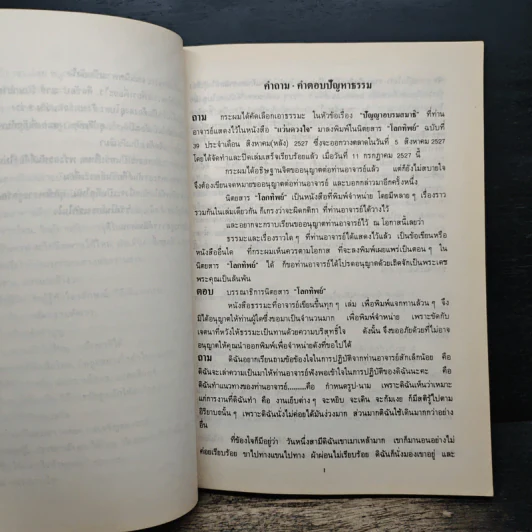 คำถาม - คำตอบปัญหาธรรม
ถาม กระผมได้คัดเลือกเอาธรรมะ ในหัวข้อเรื่อง "ปัญญาอบรมสมาธิ" ที่ท่าน
อาจารย์แสดงไว้ในหนังสือ "แว่นดวงใจ" มาลงพิมพ์ในนิตยสาร "โลกทิพย์" ฉบับที่
39 ประจำเดือน สิงหาคม(หลัง) 2527 ซึ่งจะออกวางตลาดในวันที่ 5 สิงหาคม 2527
โดยได้จัดทำและปิดเล่มเสร็จเรียบร้อยแล้ว เมื่อวันที่ 11 กรกฎาคม 2527 นี้
กระผมได้อธิษฐานจิตขออนุญาตต่อท่านอาจารย์แล้ว แต่ก็ยังไม่สบายใจ
จึงต้องเขียนจดหมายขออนุญาตต่อท่านอาจารย์ และบอกกล่าวมาอีกครั้งหนึ่ง
นิตยสาร "โลกทิพย์" เป็นหนังสือที่พิมพ์จำหน่าย โดยมีหลาย ๆ เรื่องราว
รวมกันในเล่มเดียวกัน ก็เกรงว่าจะผิดกติกา ที่ท่านอาจารย์ได้วางไว้
และอยากจะกราบเรียนขออนุญาตท่านอาจารย์ไว้ ณ โอกาสนี้เลยว่า
ธรรมะและเรื่องราวใด ๆ ที่ท่านอาจารย์ได้แสดงไว้แล้ว เป็นข้อเขียนหรือ
หนังสืออื่นใด ที่กระผมเห็นควรตามโอกาส ที่จะลงพิมพ์เผยแพร่เป็นตอน ๆ ใน
นิตยสาร "โลกทิพย์" ได้ ก็ขอท่านอาจารย์ได้โปรดอนุญาตด้วยเช็ดจักเป็นพระเดช
พระคุณเป็นล้นพ้น
ตอบ บรรณาธิการนิตยสาร "โลกทิพย์"
หนังสือธรรมะที่อาจารย์เขียนขึ้นทุก ๆ เล่ม เพื่อพิมพ์แจกทานล้วน ๆ จึง
มิได้อนุญาตให้ผู้ใดซึ่งขอมาเป็นจำนวนมาก เพื่อพิมพ์จำหน่าย เพราะขัดกับ
เจตนาที่หวังให้ธรรมะเป็นทานด้วยความบริสุทธิ์ใจ ดังนั้น จึงขออภัยด้วยที่ไม่อาจ
อนุญาตให้คุณนำออกพิมพ์เพื่อจำหน่ายดังที่ขอไปได้
ถาม ดิฉันอยากเรียนถามข้อข้องใจในการปฏิบัติจากท่านอาจารย์สักเล็กน้อย คือ
ดิฉันจะเล่าความเป็นมาให้ท่านอาจารย์ฟังพอเข้าใจในการปฏิบัติของดิฉันนะคะ คือ
ดิฉันทำแนวทางของท่านอาจารย์.........คือ กำหนดรูป-นาม เพราะดิฉันเห็นว่าเหมาะ
แก่การงานที่ดิฉันทำ คือ งานเย็บต่าง ๆ จะหยิบ จะเดิน จะก้มเงย ก็มีสติรู้ไปตาม
อิริยาบถนั้น ๆ เพราะดิฉันนั่งไม่ค่อยได้มันง่วงมาก ส่วนมากดิฉันใช้เดินมากกว่าอย่าง
อื่น
ที่ข้องใจก็มีอยู่ว่า วันหนึ่งสามีดิฉันเขาเมาเหล้ามาก เขาก็มานอนอย่างไม่
ค่อยเรียบร้อย ขาไปทางแขนไปทาง ผ้าผ่อนไม่เรียบร้อย ดิฉันก็นั่งมองเขาอยู่ และ
1